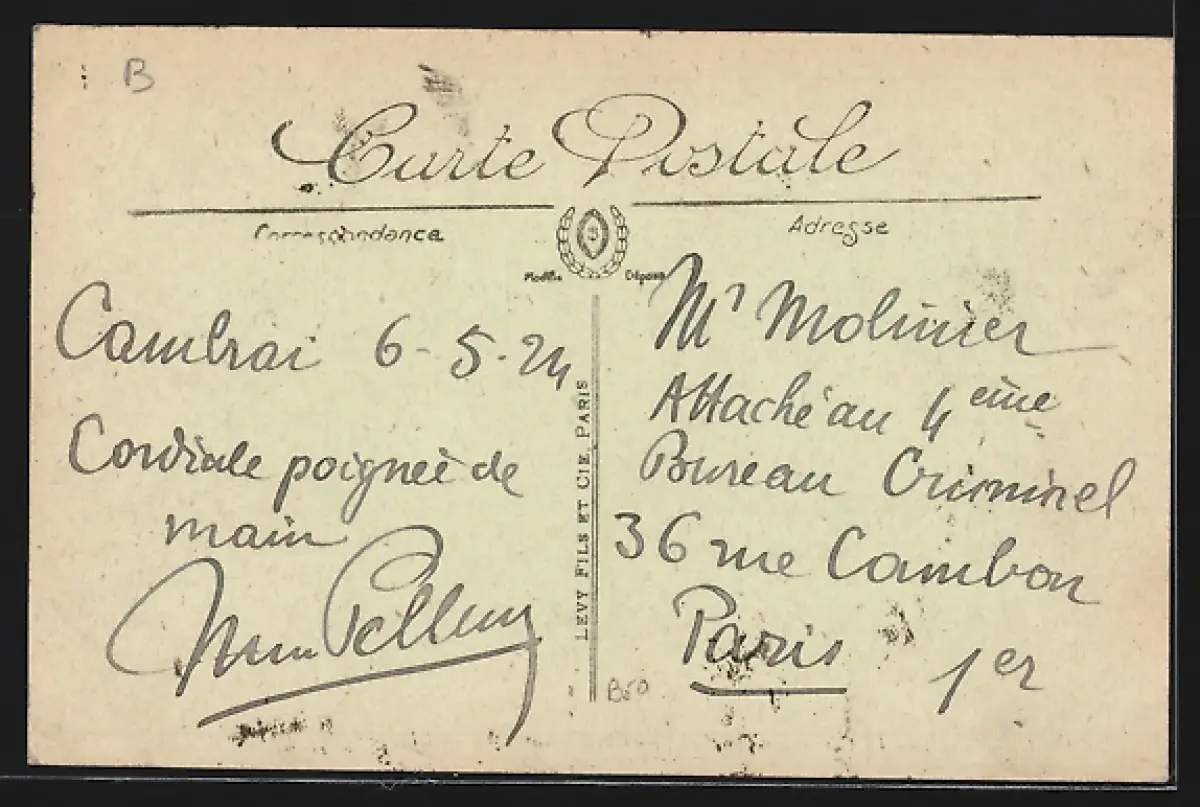 B
Carte Postale
Correspondance
Adresse
Modèle Déposé
Cambrai 6-5-24
Cordiale poignée de
main
LEVY FILS ET CIE, PARIS
Mr Molinier
Attaché au 4eme
Bureau Criminel
36 rue Cambon
Paris 1er
B50